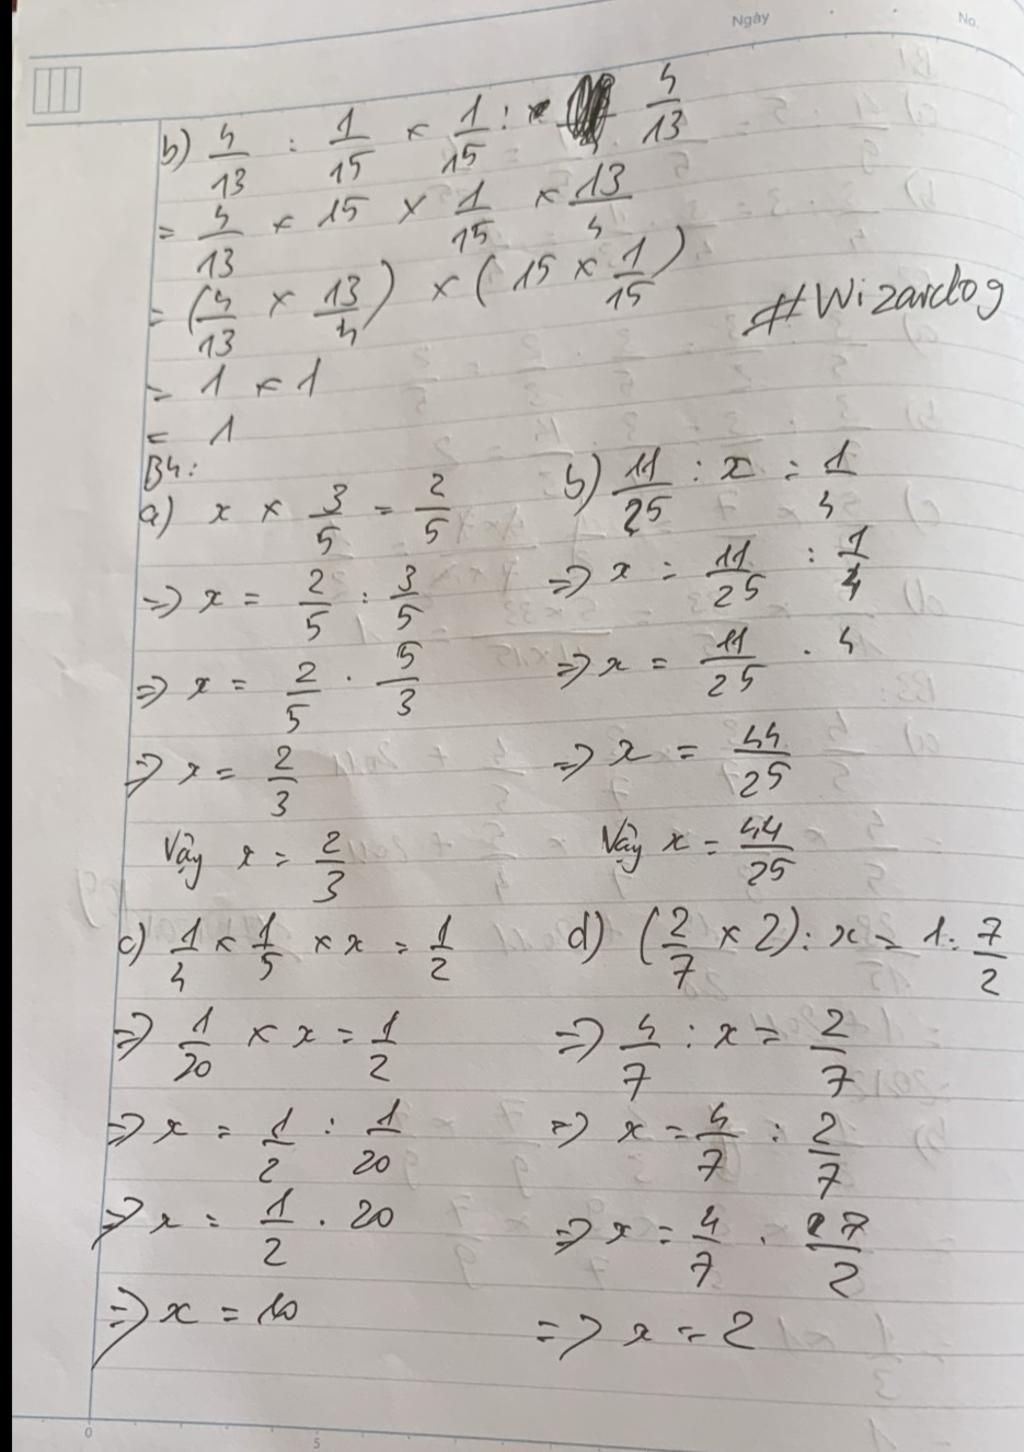 Ngày No.
b) 4/13 : 1/15 × 1/15 : 4/13
= 4/13 × 15 × 1/15 × 13/4
= (4/13 × 13/4) × (15 × 1/15)
#Wizardog
= 1 × 1
= 1
B4:
a) x × 3/5 = 2/5
=> x = 2/5 : 3/5
=> x = 2/5 . 5/3
=> x = 2/3
Vậy x = 2/3
b) 11/25 : x = 1/4
=> x = 11/25 : 1/4
=> x = 11/25 . 4
=> x = 44/25
Vậy x = 44/25
c) 1/4 × 1/5 × x = 1/2
=> 1/20 × x = 1/2
=> x = 1/2 : 1/20
=> x = 1/2 . 20
=> x = 10
d) (2/7 × 2) : x = 1 : 7/2
=> 4/7 : x = 2/7
=> x = 4/7 : 2/7
=> x = 4/7 . 7/2
=> x = 2
0 5